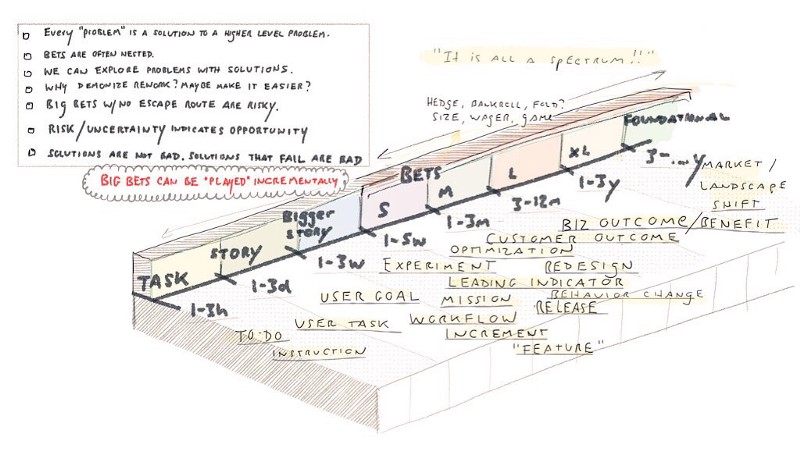 Every "problem" is a solution to a higher level problem.
Bets are often nested.
We can explore problems with solutions.
Why demonize rework? Maybe make it easier?
Big bets w/no escape route are risky.
Risk/uncertainty indicates opportunity
Solutions are not bad. Solutions that fail are bad
Big bets can be "played" incrementally
"It is all a spectrum!!"
Hedge, bankroll, fold?
Size, wager, game
Foundational
XL
L
M
S
Bets
Bigger
Story
Story
Task
1-3h
1-3d
1-3w
1-5w
1-3m
3-12m
1-3y
3-...y
Market/
Landscape
Shift
Biz Outcome/Benefit
Customer Outcome
Optimization
Experiment
Redesign
Leading Indicator
User Goal
Mission
Behavior Change
Release
User Task
Workflow
Increment
To-Do
Instruction
"Feature"